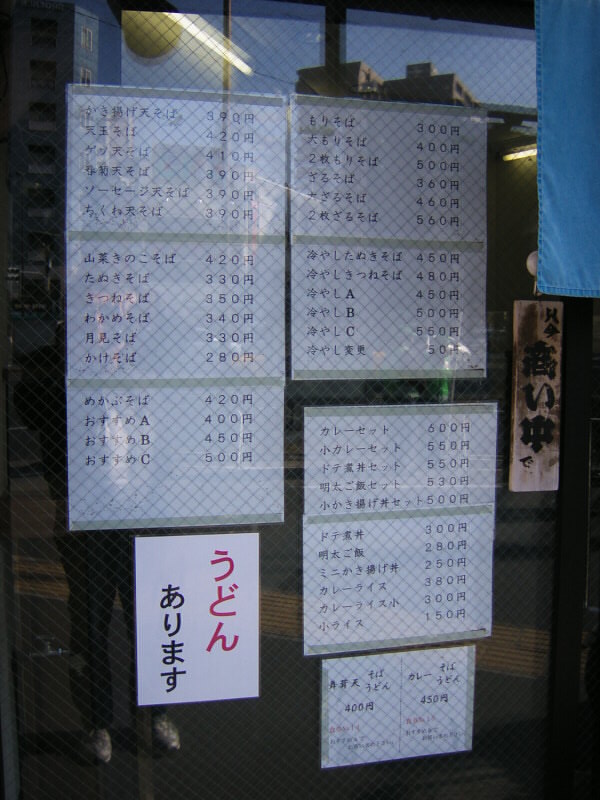 かき揚げ天そば 390円
天玉そば 420円
ゲソ天そば 410円
春菊天そば 390円
ソーセージ天そば 390円
ちくわ天そば 390円
山菜きのこそば 420円
たぬきそば 330円
きつねそば 350円
わかめそば 340円
月見そば 330円
かけそば 280円
めかぶそば 420円
おすすめA 400円
おすすめB 450円
おすすめC 500円
もりそば 300円
大もりそば 400円
2枚もりそば 500円
ざるそば 360円
大ざるそば 460円
2枚ざるそば 560円
冷やしたぬきそば 450円
冷やしきつねそば 480円
冷やしA 450円
冷やしB 500円
冷やしC 550円
冷やし変更 50円
カレーセット 600円
小カレーセット 550円
ドテ煮丼セット 550円
明太ご飯セット 530円
小かき揚げ丼セット 500円
ドテ煮丼 300円
明太ご飯 280円
ミニかき揚げ丼 250円
カレーライス 380円
カレーライス小 300円
小ライス 150円
うどん
あります
舞茸天 そば
うどん
400円
カレー そば
うどん
450円
只今
商い中
で